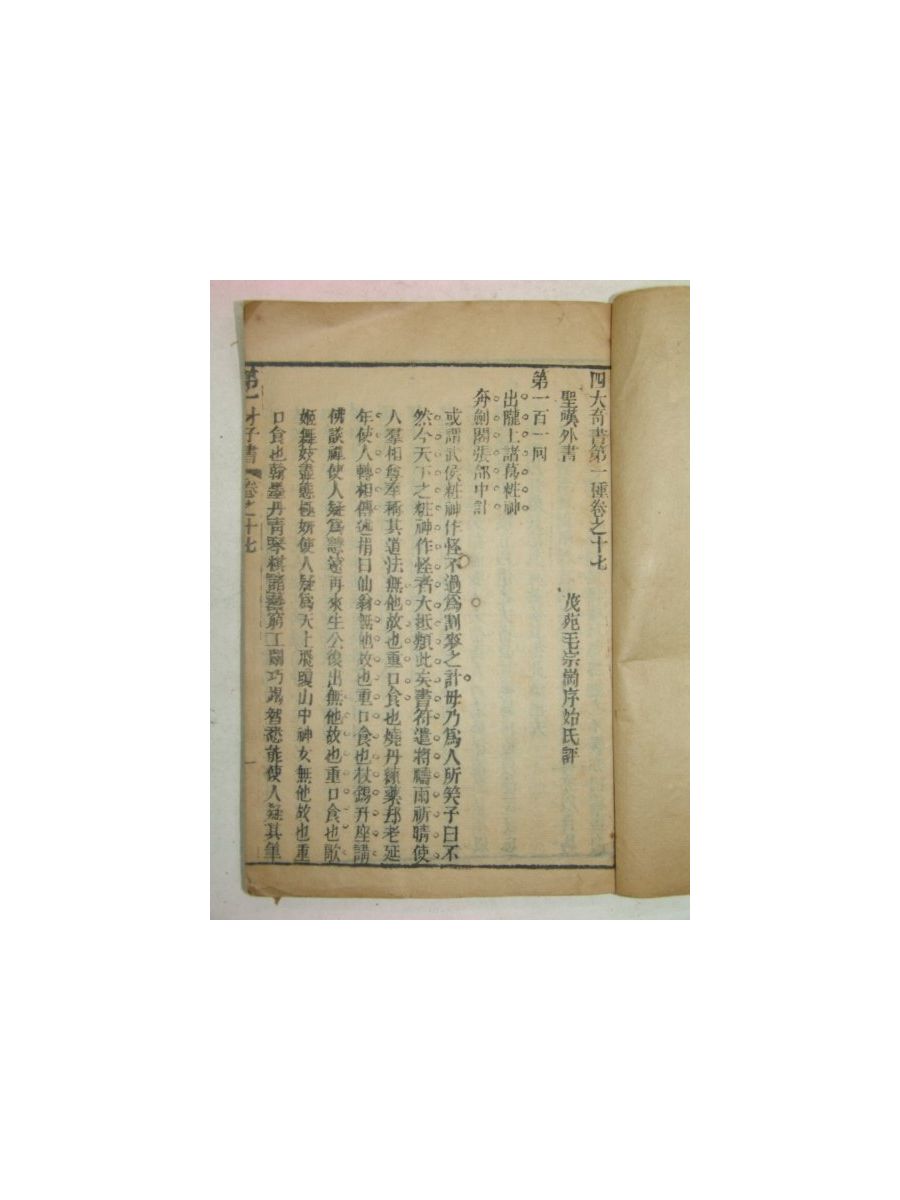 四大奇書第一種卷之十七
聖嘆外書
茂苑毛宗崗序始氏評
第一百一回
出隴上諸葛粧神
奔劍閣張郃中計
或謂武侯粧神作怪不過爲割麥之計毋乃爲人所笑子曰不
然今天下之粧神作怪者大抵類此矣書符遣將禱雨祈晴使
人羣相尊奉稱其道法無他故也重口食也燒丹煉藥却老延
年使人轉相傳述指曰仙翁無他故也重口食也杖錫升座講
佛談禪使人疑爲慧遠再來生公復出無他故也重口食也歌
姬舞妓盡態極妍使人疑爲天上飛瓊山中神女無他故也重
口食也翰墨丹青琴棋諸藝窮工鬬巧竭智悉能使人疑其筆
第一才子書 卷之十七 一